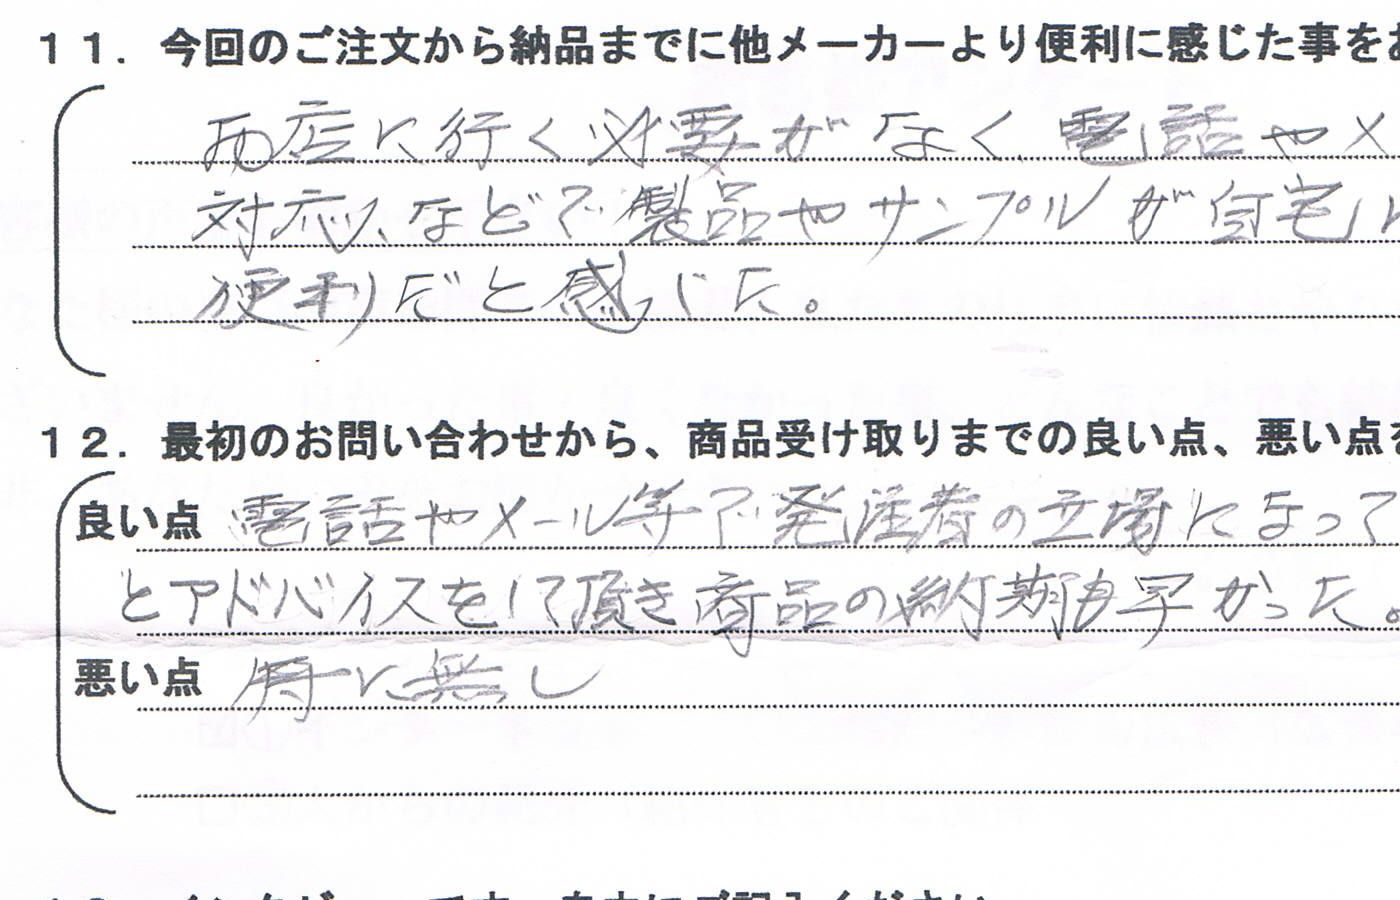 11．今回のご注文から納品までに他メーカーより便利に感じた事を
お店に行く必要がなく、電話やメ
対応などで製品やサンプルが自宅に
便利だと感じた。
12．最初のお問い合わせから、商品受け取りまでの良い点、悪い点
良い点 電話やメール等で発注者の立場になって
とアドバイスをして頂き商品の納期も早かった。
悪い点 特に無し